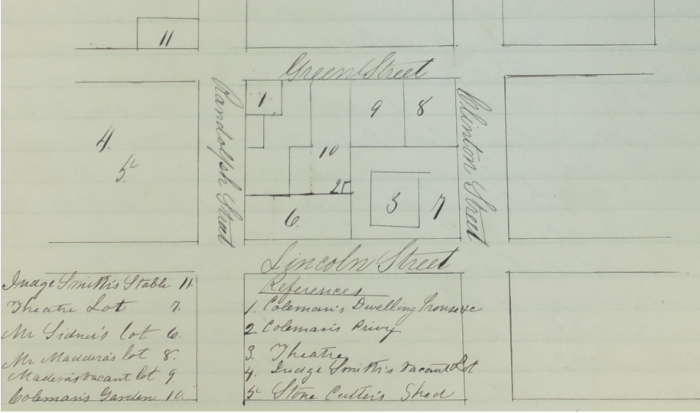 11
Green Street
Randolph Street
Clinton Street
1
9
8
4
10
5
2
3
7
6
Lincoln Street
Judge Smith's Stable 11
Theatre Lot 7
Mr Sidner's lot 6
Mr Maddera's lot 8
Madera's vacant lot 9
Coleman's Garden 10
References
1. Coleman's Dwelling
2 Coleman's Privy
3 Theatre
4. Judge Smith's Vacant Lot
5 Stone Cutter's Shed